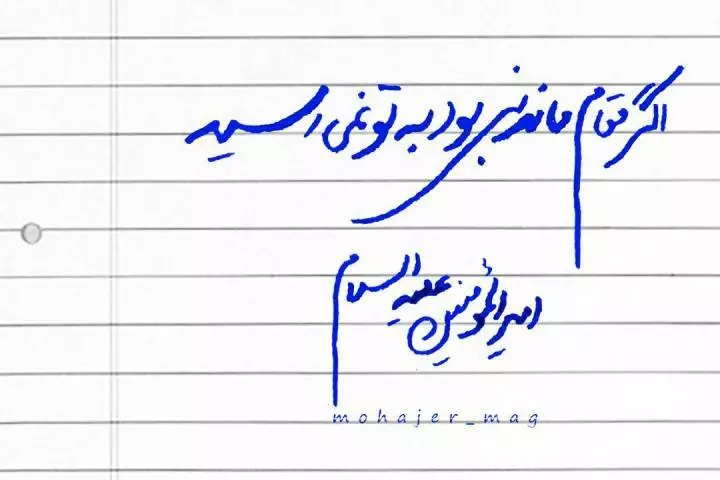 اگر مقام ماندنی بود به تو نمی رسید
امیرالمؤمنین علیه السلام
mohajer_mag